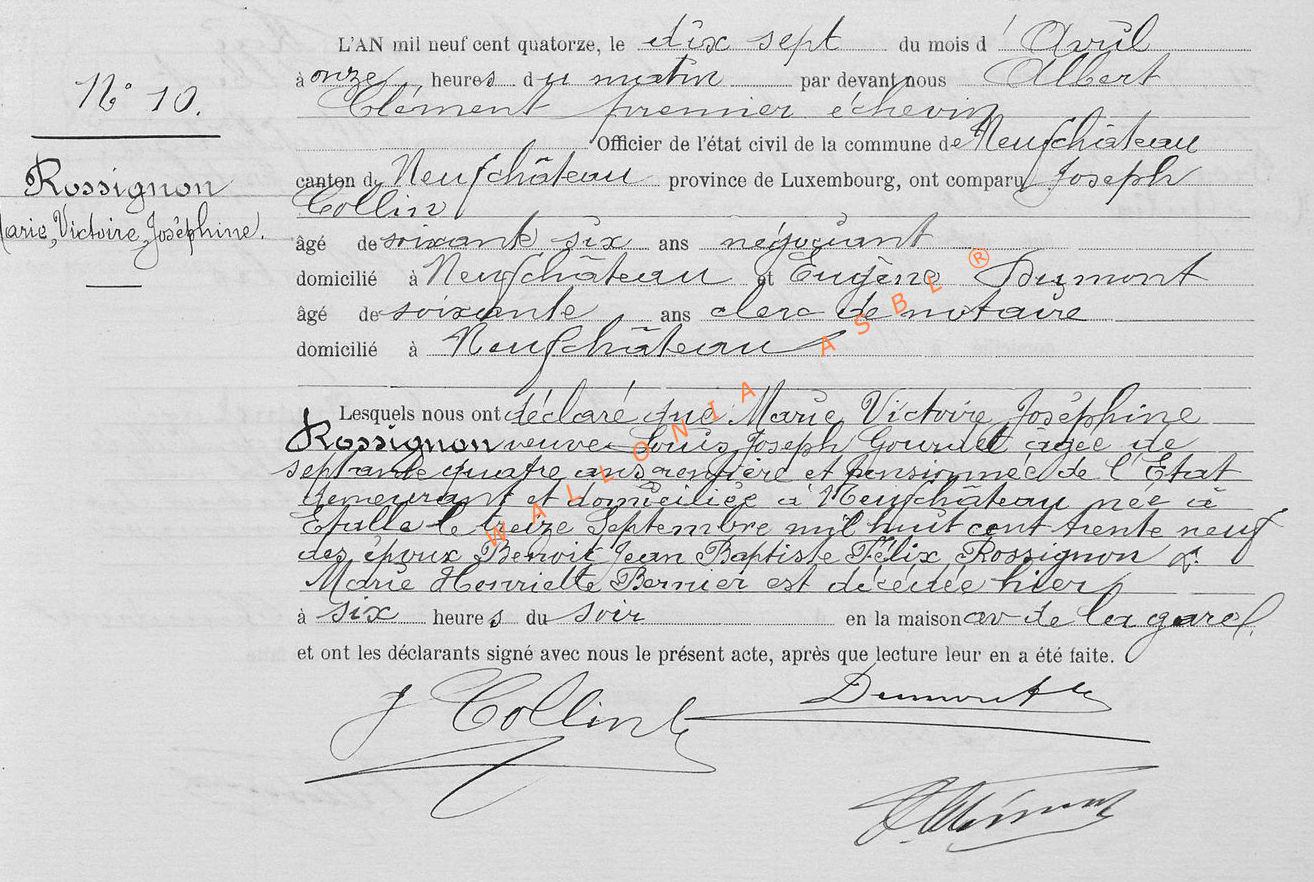 L'AN mil neuf cent quatorze, le dix sept du mois d' Avril
N° 10.
à onze heures du matin par devant nous Albert
Clément premier échevin
Officier de l'état civil de la commune de Neufchâteau
Rossignon
canton de Neufchâteau province de Luxembourg, ont comparu Joseph
Collin
Marie, Victoire, Joséphine.
âgé de soixante six ans négociant
domicilié à Neufchâteau et Eugène Dumont
âgé de soixante ans clerc de notaire
domicilié à Neufchâteau
WALLONIA ASBL ®
Lesquels nous ont déclaré que Marie Victoire Joséphine
Rossignon veuve Louis Joseph agée de
septante quatre ans rentière et pensionnée de l'Etat
demeurant et domiciliée à Neufchâteau née à
Etalle le treize Septembre mil huit cent trente neuf
des époux Benoit Jean Baptiste Félix Rossignon &
Marie Henriette Bernier est décédée hier
à six heures du soir en la maison av de la gare.
et ont les déclarants signé avec nous le présent acte, après que lecture leur en a été faite.
J Collin
Dumont